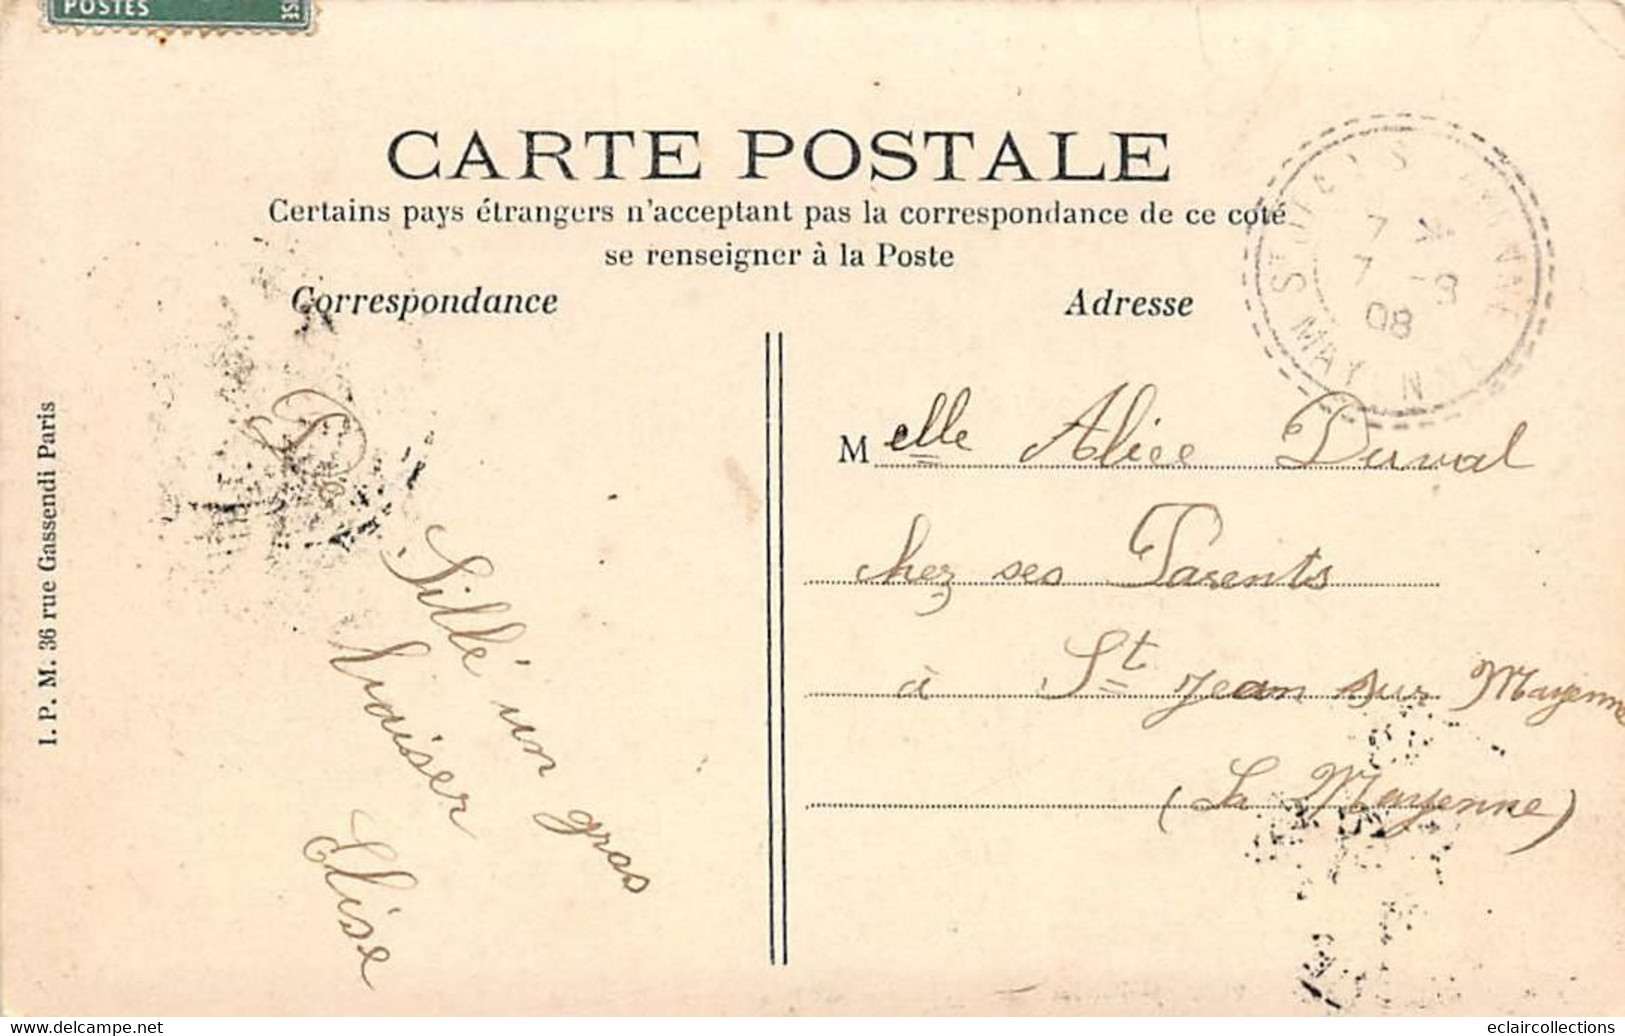 POSTES
CARTE POSTALE
Certains pays étrangers n'acceptant pas la correspondance de ce coté
se renseigner à la Poste
Correspondance
Adresse
I. P. M. 36 rue Gassendi Paris
De
Sillé un gros
baiser
Elise
Melle Alice Duval
chez ses Parents
à St Jean sur Mayenne
(La Mayenne)
ST JEAN S MAYENNE
7 -9
08
MAYENNE
eclaircollections